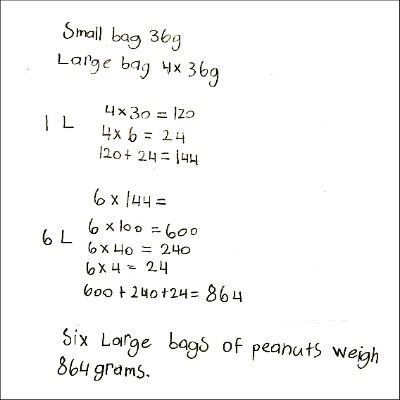 Small bag 36g
Large bag 4x 36g
1 L
4 x 30 = 120
4 x 6 = 24
120 + 24 = 144
6 x 144 =
6 L
6 x 100 = 600
6 x 40 = 240
6 x 4 = 24
600 + 240 + 24 = 864
Six Large bags of peanuts weigh
864 grams.